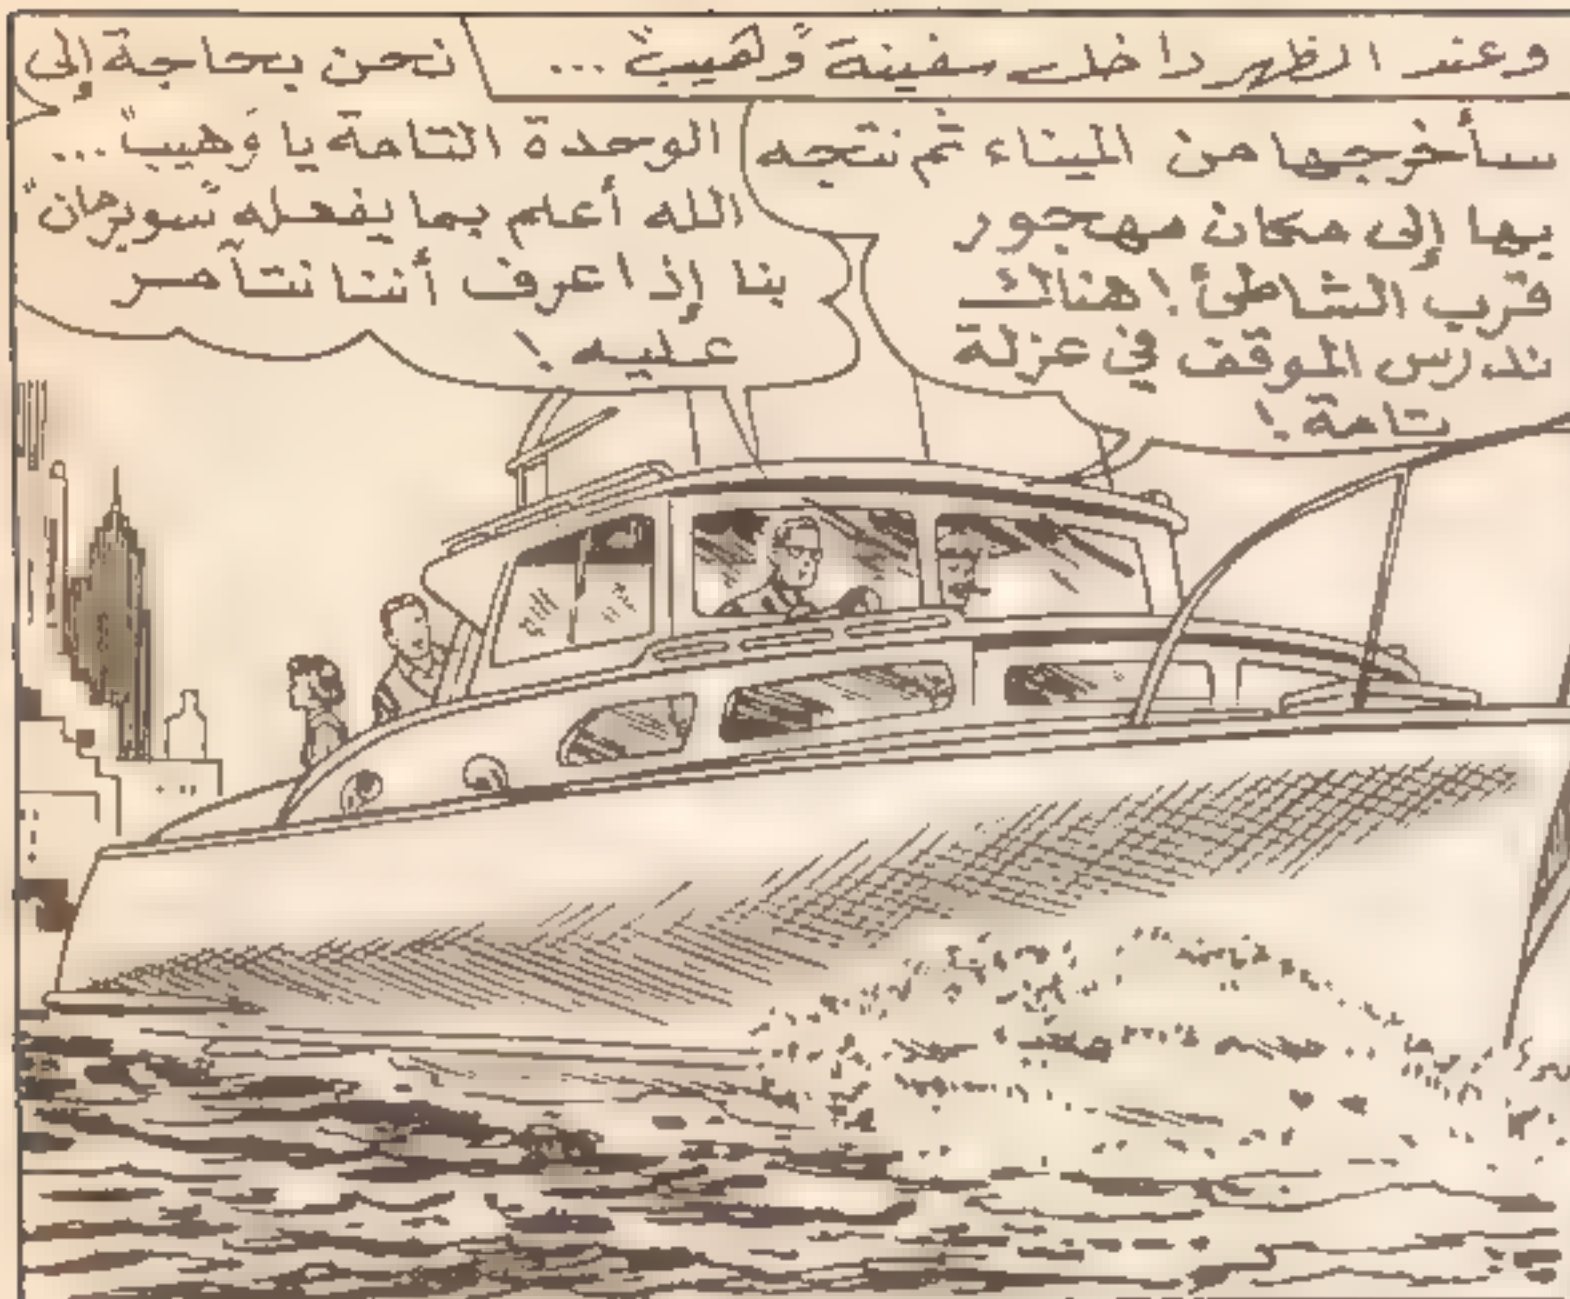 وعند الظهر داخل سفينة "وهيب" ...
سأخرجها من الميناء ثم نتجه
بها إلى مكان مهجور
قرب الشاطئ ! هناك
ندرس الموقف في عزلة
تامة !
نحن بحاجة إلى
الوحدة التامة يا "وهيب" ...
الله أعلم بما يفعله "سوبرمان"
بنا إذا عرف أننا نتآمر
عليه !